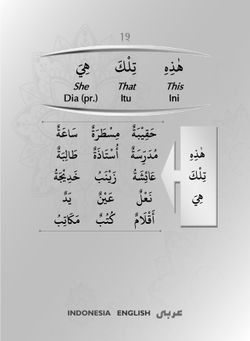 19
هٰذِهِ تِلْكَ هِيَ
This That She
Ini Itu Dia (pr.)
هٰذِهِ
تِلْكَ
هِيَ
حَقِيْبَةٌ مِسْطَرَةٌ سَاعَةٌ
مُدَرِّسَةٌ أُسْتَاذَةٌ طَالِبَةٌ
عَائِشَةُ زَيْنَبُ خَدِيْجَةُ
نَعْلٌ عَيْنٌ يَدٌ
أَقْلَامٌ كُتُبٌ مَكَاتِبُ
INDONESIA ENGLISH عربي